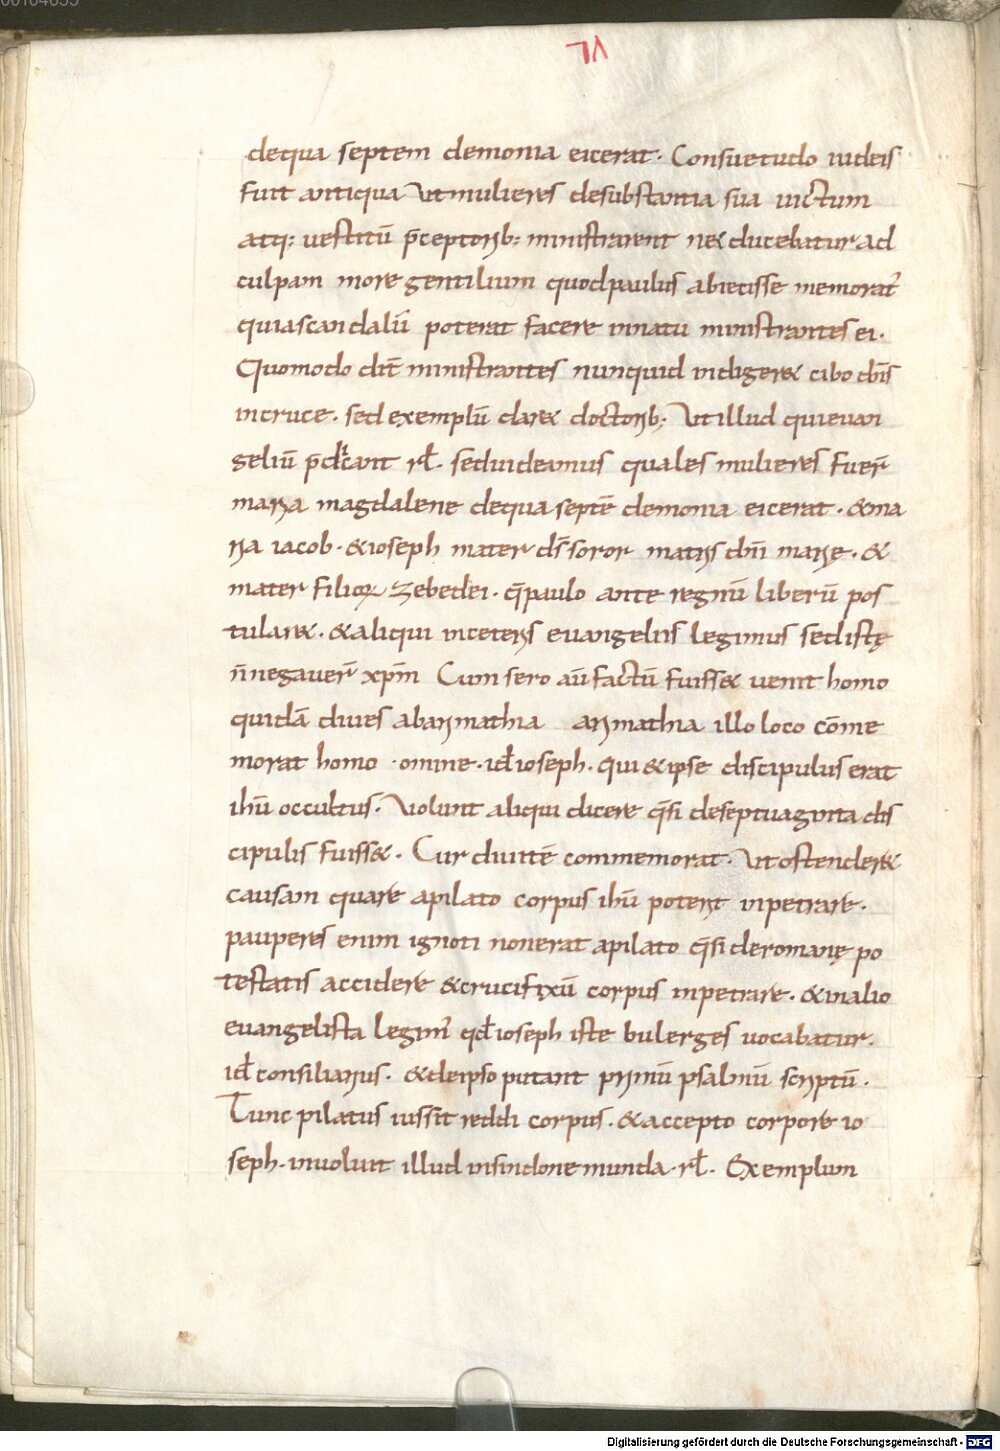 VL
dequa septem demonia eicerat· Consuetudo iudeis
fuit antiqua Ut mulieres desubstantia sua uictum
atq: uestitū p̄ceptorib: ministrarent nec ducebatur ad
culpam more gentilium quodpaulus abiecisse memorat̄
quiascandalū poterat facere innatu ministrantes ei·
Quomodo dic̄ ministrantes nunquid indiger& cibo dn̄s
incruce· sed exemplū dar& doctorib; Ut illud qui euan
geliū p̄dicant rl̄· seduideamus quales mulieres fuer̄
maria magdalene dequa septē demonia eicerat· &ma
ria iacob· &ioseph mater ds̄ soror matris dn̄i marię· &
mater filioꝝ zebedei· q̄paulo ante regnū liberū pos
tular&· &aliqui inceteris euangeliis legimus sedistę
n̄negauer̄ xp̄m Cum sero aū factū fuiss& uenit homo
quidā diues abarimathia arimathia illo loco cōme
morat homo ·omine· id̄ ioseph· qui &ipse discipulus erat
ihū occultus· Uolunt aliqui dicere q̄si deseptuaginta dis
cipulis fuiss&· Cur diuitē commemorat· Ut ostender&
causam quare apilato corpus ihū poterit inpetrare·
pauperes enim ignoti nonerat apilato q̄si deromanę po
testatis accidere &crucifixū corpus inpetrare· &inalio
euangelista legim̄ qd̄ ioseph iste bulerges uocabatur·
id̄ consiliarius· &deipso putant primū psalmū scriptū·
Tunc pilatus iussit reddi corpus· &accepto corpore io
seph· inuoluit illud insindone munda· rl̄· Exemplum
Digitalisierung gefördert durch die Deutsche Forschungsgemeinschaft - DFG